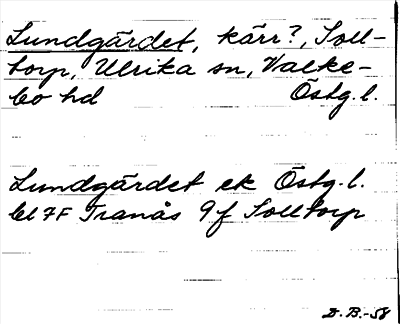 Lundgärdet, kärr?, Soll-
torp, Ulrika sn, Valke-
bo hd Östg.l.
Lundgärdet ek Östg.l.
bl 7F Tranås 9f Solltorp
D.B.-58